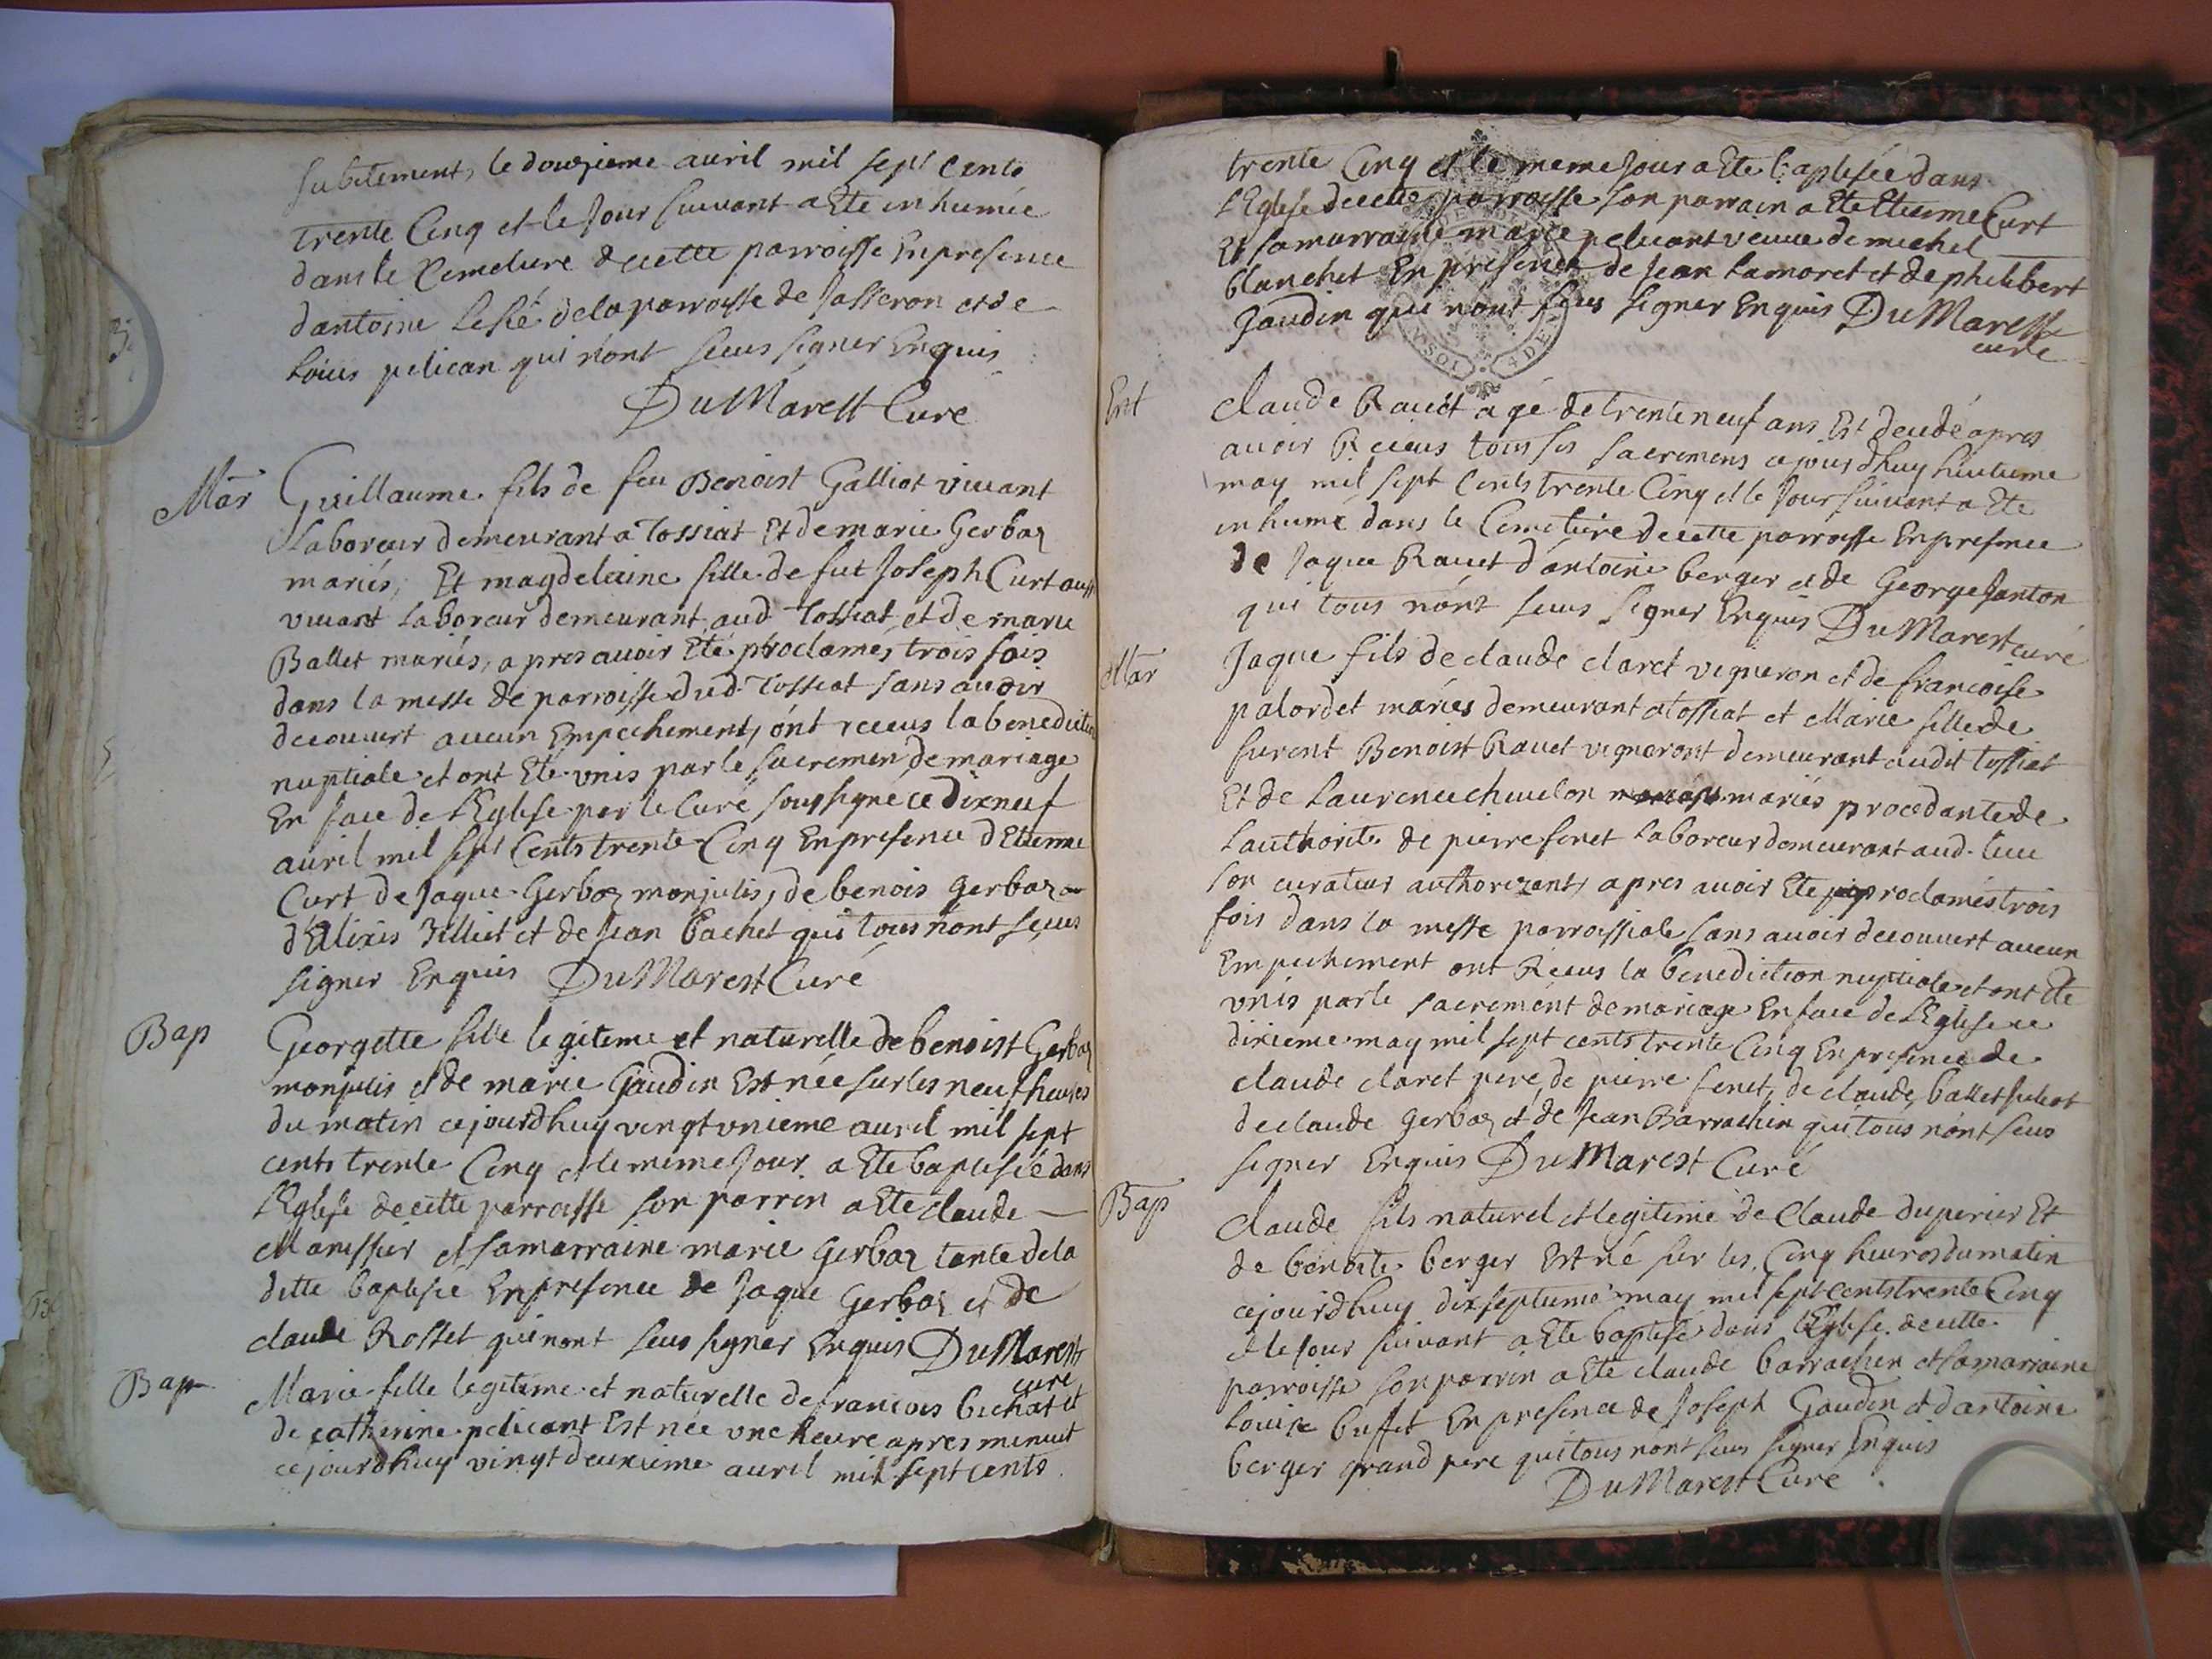 subitement, le douzieme auril mil sept cents
trente Cinq et le Jour suiuant a Ete inhumée
dans le Cemetiere de cette parroisse En presence
dantoine de la parroisse de Jasseron et de
Louis pelican qui n'ont sceus signer Enquis
DuMarest Curé
Mar
Guillaume fils de feu Benoist Galliot viuant
Laboreur demeurant a Tossiat Et de marie Gerbaz
mariés, Et magdelaine fille de fut Joseph Curt aussi
viuant Laboreur demeurant aud Tossiat et de marie
Ballet mariés, apres auoir Eté proclamés trois fois
dans la messe de parroisse dud Tossiat sans auoir
decouuert aucun Empechement, ont receus la benediction
nuptiale et ont Eté vnis par le sacremen de mariage
En face de L'Eglise par le Curé soussigné ce dixneuf
auril mil sept Cents trente Cinq En presence d'Etienne
Curt de Jaque Gerbaz monjulis, de benois Gerbaz
d'Elixis et de Jean Cachet qui tous n'ont sceus
signer Enquis DuMarest Curé
Bap
Georgette fille legitime et naturelle de benoist Gerbaz
monjulis et de marie Gaudin Est née sur les neuf heures
du matin cejourdhuy vingt vnieme auril mil sept
cents trente Cinq et le meme Jour a Ete baptisée dans
L'Eglise de cette parroisse son parrin a Ete claude
et sa marraine marie Gerbaz tante de la
ditte baptisée En presence de Jaque Gerbaz et de
claude Rosset qui nont sceus signer Enquis DuMarest
curé
Bap
Marie fille legitime et naturelle de francois bichat et
de catherine pelicant Est née vne heure apres minuit
cejourdhuy vingt deuxieme auril mil sept cents
trente Cinq et le meme Jour a Ete baptisée dans
L'Eglise de cette parroisse son parrain a Ete Etienne Curt
Et sa marraine marie pelicant veuue de michel
blanchet En presence de Jean Lamoret et de philibert
Gaudin qui n'ont sceus signer Enquis DuMarest
curé
Ent
claude Rauet agé de trente neuf ans Est decedé apres
auoir Receus tous ses sacremens cejourdhuy huitieme
may mil sept Cents trente Cinq et le Jour suiuant a Ete
inhumé dans le Cemetiere de cette parroisse En presence
de Jaque Rauet d'antoine berger et de George Janton
qui tous n'ont sceus signer Enquis DuMarest curé
Mar
Jaque fils de claude claret vigneron et de francoise
palordet mariés demeurant a Tossiat et Marie fille de
furent Benoist Rauet vigneront demeurant audit Tossiat
Et de Laurence cheuelon mariés procedante de
L'authorité de pierre feret Laboreur demeurant aud. lieu
son curateur authorizant, apres auoir Ete proclamés trois
fois dans la messe parroissiale sans auoir decouuert aucun
Empechement ont Receus la benediction nuptiale et ont ete
vnis par le sacrement de mariage En face de L'Eglise ce
dixieme may mil sept cents trente Cinq En presence de
claude claret pere, de pierre feret, de claude ballet
de claude Gerbaz et de Jean Barrachin qui tous n'ont sceus
signer Enquis DuMarest Curé
Bap
claude fils naturel et legitime de Claude duperier Et
de benoite berger Est né sur les Cinq heures du matin
cejourdhuy dix septieme may mil sept cents trente Cinq
et le Jour suiuant a Ete baptisé dans L'Eglise de cette
parroisse son parrin a Ete claude barrachin et sa marraine
Louise buffet En presence de Joseph Gaudin et d'antoine
berger grand pere qui tous n'ont sceus signer Enquis
DuMarest Curé